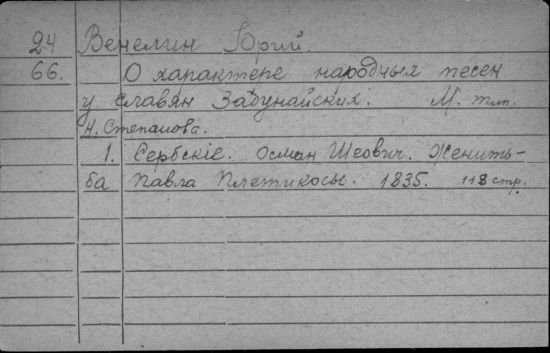 24 Венелин Юрий.
66. О характере народных песен
у славян Задунайских. М. тип.
Н. Степанова.
1. Сербскіе. Осман Шеович. Женить-
ба Павла Плетикосы. 1835. 118 стр.